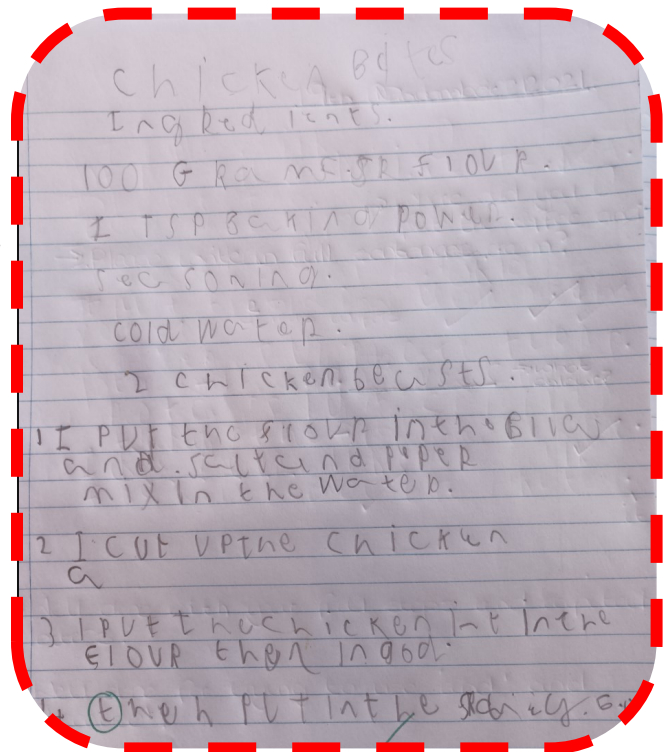 Chicken Bites
Ingredients.
100 Grams.SR flour.
1 TSP Baking power.
seasoning.
cold water.
2 chicken.beasts.
1 I put the flour in the
and.salt and piper
mix in the water.
2 I cut up the chicken
a
3 I put the chicken int in the
flour then
then put in the